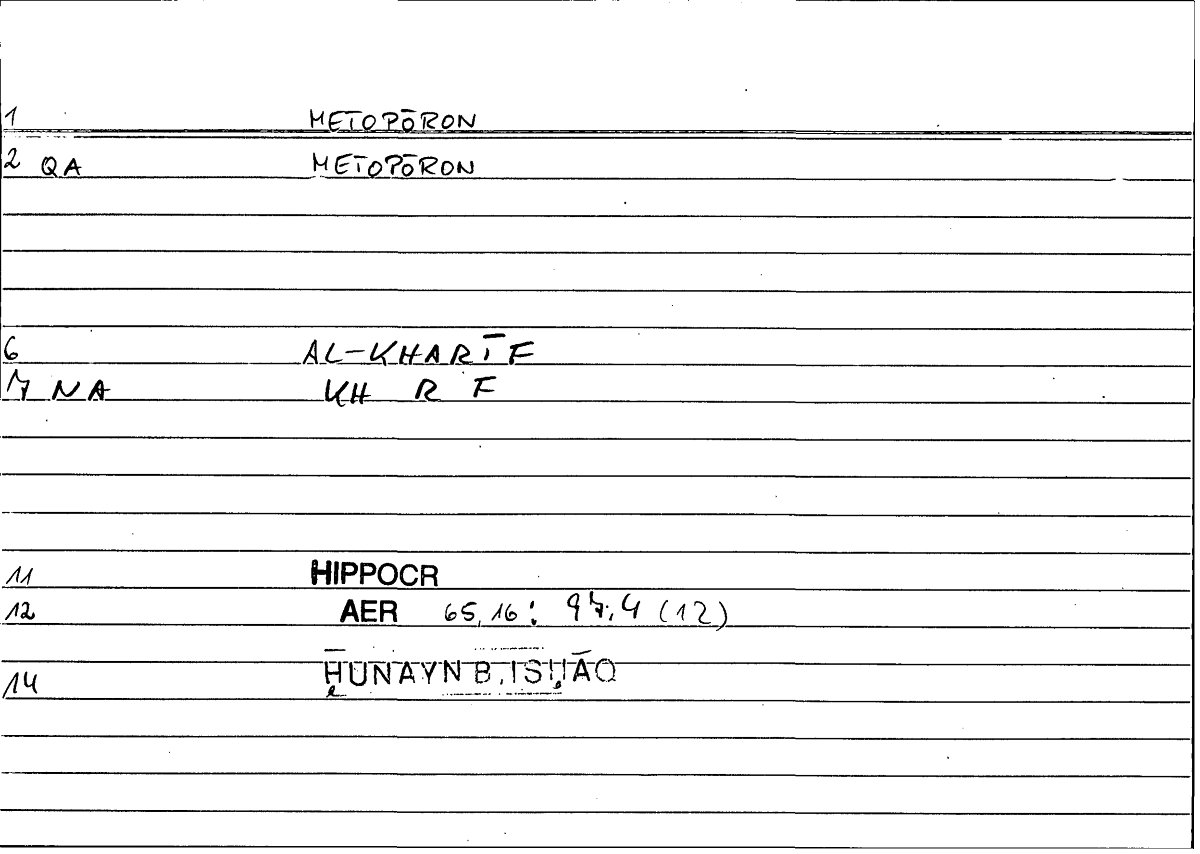 1 METOPŌRON
2 QA METOPŌRON
6 AL-KHARĪF
7 NA KH R F
11 HIPPOCR
12 AER 65,16: 97,4 (12)
14 ḤUNAYN B. ISḤĀQ